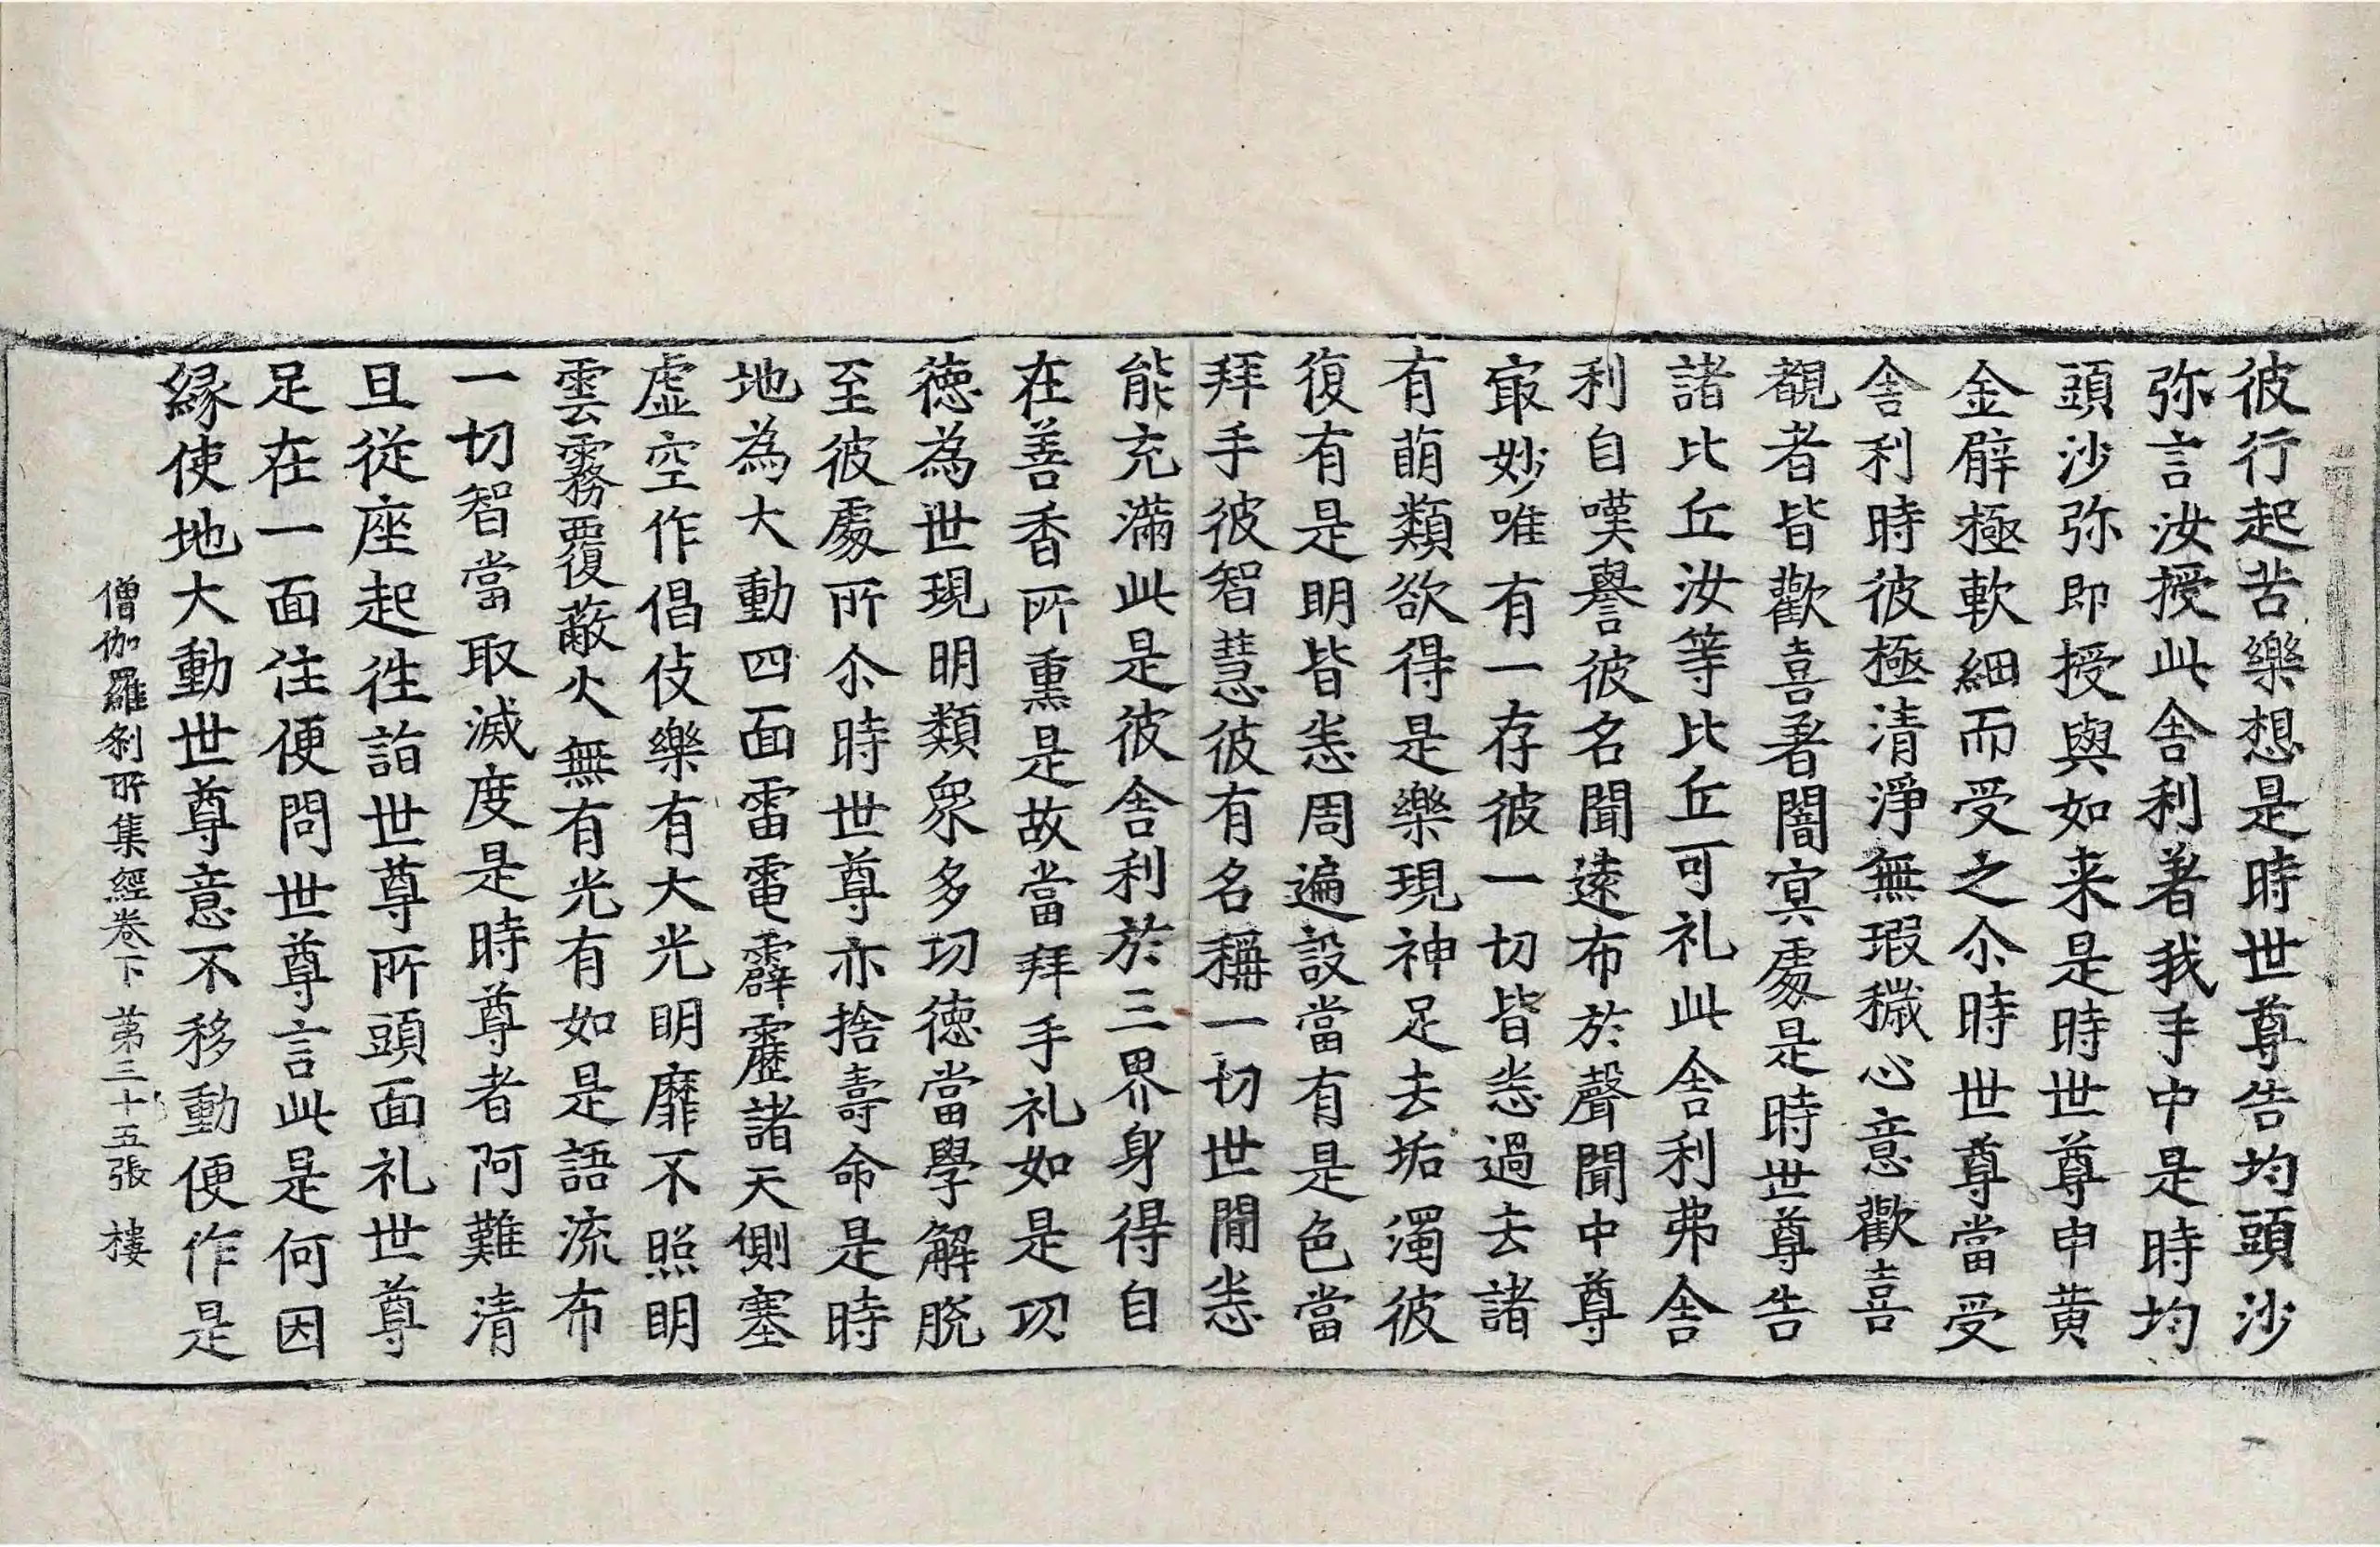 彼行起苦樂想是時世尊告均頭沙
弥言汝授此舎利著我手中是時均
頭沙弥即授與如来是時世尊申黄
金臂極軟細而受之尒時世尊當受
舎利時彼極清淨無瑕穢心意歡喜
觀者皆歡喜著闇㝠處是時世尊告
諸比丘汝等比丘可礼此舎利弗舎
利自嘆譽彼名聞逺布於聲聞中尊
㝡妙唯有一存彼一切皆悉過去諸
有萠類欲得是樂現神足去垢濁彼
復有是明皆悉周遍設當有是色當
拜手彼智慧彼有名稱一切世間悉
能充滿此是彼舎利於三界身得自
在善香所熏是故當拜手礼如是功
德為世現明類衆多功德當學解脱
至彼處所尒時世尊亦捨壽命是時
地為大動四面雷電霹靂諸天側塞
虚空作倡伎樂有大光明靡不照明
雲霧覆蔽火無有光有如是語流布
一切智當取滅度是時尊者阿難清
旦從座起徃詣世尊所頭面礼世尊
足在一面住便問世尊言此是何因
縁使地大動世尊意不移動便作是
僧伽羅刹所集經卷下 第三十五張 樓